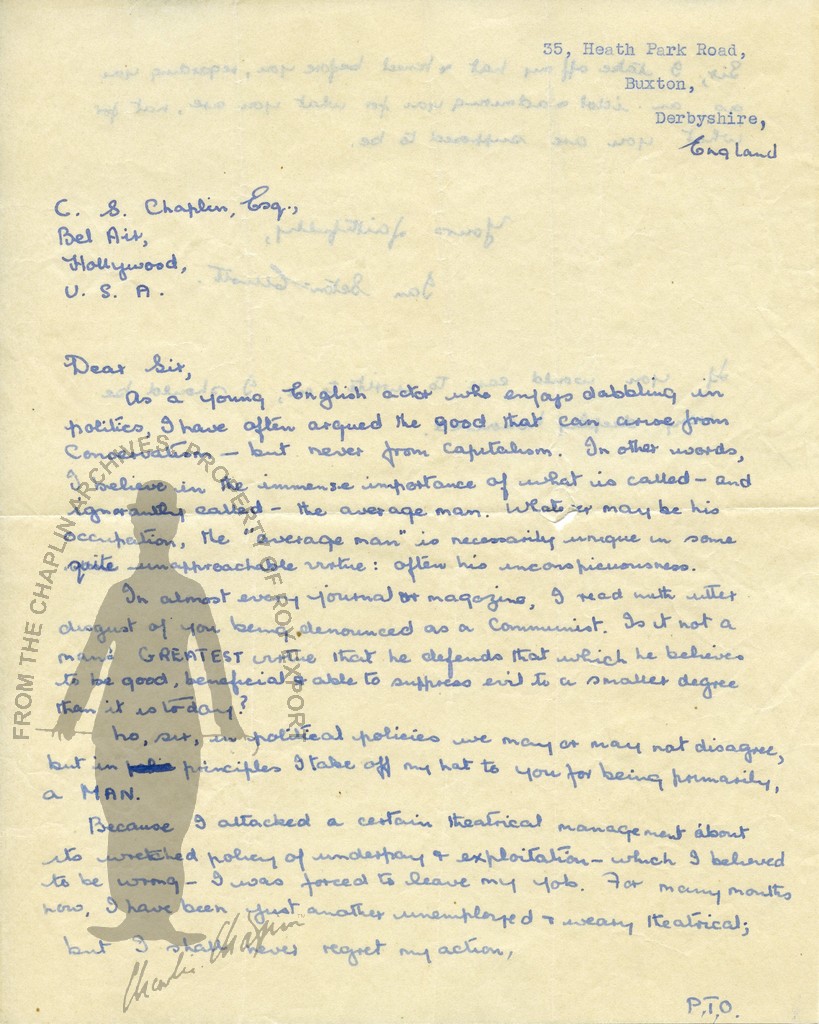 35, Heath Park Road,
Buxton,
Derbyshire,
England
C. S. Chaplin, Esq.,
Bel Air,
Hollywood,
U. S. A.
Dear Sir,
As a young English actor who enjoys dabbling in
politics, I have often argued the good that can arise from
Conservatism – but never from capitalism. In other words,
I believe in the immense importance of what is called – and
ignorantly called – the average man. Whatever may be his
occupation, the "average man" is necessarily unique in some
quite unapproachable virtue: often his inconspicuousness.
In almost every journal or magazine, I read with utter
disgust of you being denounced as a Communist. Is it not a
man's GREATEST virtue that he defends that which he believes
to be good, beneficial & able to suppress evil to a smaller degree
than it is to day?
No, sir, in political policies we may or may not disagree,
but in principles I take off my hat to you for being primarily,
a MAN.
Because I attacked a certain theatrical management about
its wretched policy of underpay & exploitation – which I believed
to be wrong – I was forced to leave my job. For many months
now, I have been just another unemployed & weary theatrical;
but I shall never regret my action,
P.T.O.
FROM THE CHAPLIN ARCHIVES. PROPERTY OF ROY EXPORT
Charlie Chaplin